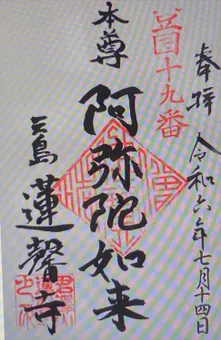 奉拝 令和六年七月十四日
十九番
本尊
阿弥陀如来
三島 蓮馨寺